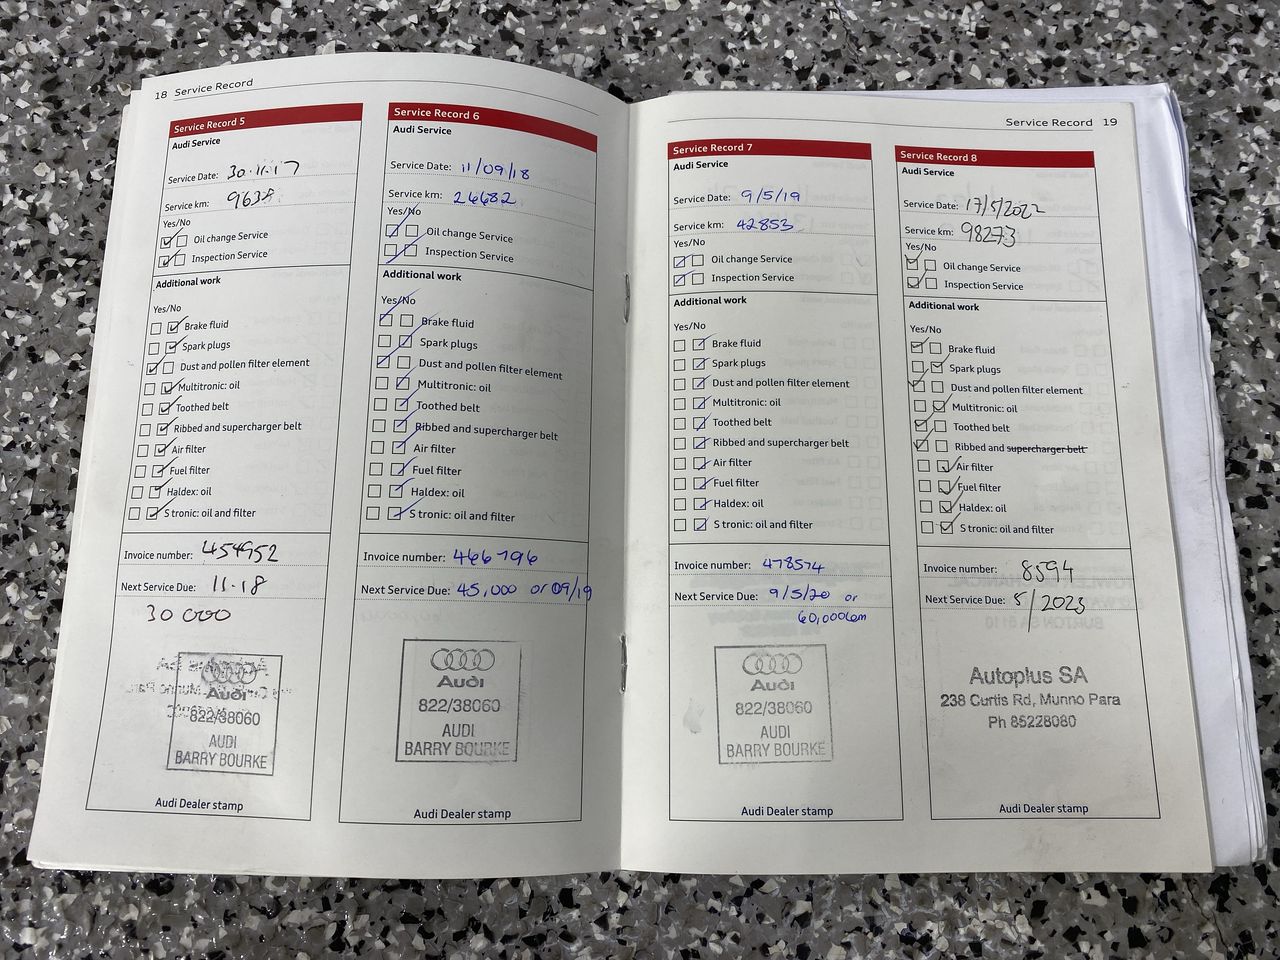 18 Service Record
Service Record 5
Audi Service
Service Date: 30.11.17
Service km: 9638
Yes/No
Oil change Service
Inspection Service
Additional work
Yes/No
Brake fluid
Spark plugs
Dust and pollen filter element
Multitronic: oil
Toothed belt
Ribbed and supercharger belt
Air filter
Fuel filter
Haldex: oil
S tronic: oil and filter
Invoice number: 454952
Next Service Due: 11.18
30 000
Audi
822/38060
AUDI
BARRY BOURKE
Audi Dealer stamp
Service Record 6
Audi Service
Service Date: 11/09/18
Service km: 26682
Yes/No
Oil change Service
Inspection Service
Additional work
Yes/No
Brake fluid
Spark plugs
Dust and pollen filter element
Multitronic: oil
Toothed belt
Ribbed and supercharger belt
Air filter
Fuel filter
Haldex: oil
S tronic: oil and filter
Invoice number: 466796
Next Service Due: 45,000 or 09/19
Audi
822/38060
AUDI
BARRY BOURKE
Audi Dealer stamp
Service Record 19
Service Record 7
Audi Service
Service Date: 9/5/19
Service km: 42853
Yes/No
Oil change Service
Inspection Service
Additional work
Yes/No
Brake fluid
Spark plugs
Dust and pollen filter element
Multitronic: oil
Toothed belt
Ribbed and supercharger belt
Air filter
Fuel filter
Haldex: oil
S tronic: oil and filter
Invoice number: 478574
Next Service Due: 9/5/20 or
60,000km
Audi
822/38060
AUDI
BARRY BOURKE
Audi Dealer stamp
Service Record 8
Audi Service
Service Date: 17/5/2022
Service km: 98273
Yes/No
Oil change Service
Inspection Service
Additional work
Yes/No
Brake fluid
Spark plugs
Dust and pollen filter element
Multitronic: oil
Toothed belt
Ribbed and supercharger belt
Air filter
Fuel filter
Haldex: oil
S tronic: oil and filter
Invoice number: 8594
Next Service Due: 5/2023
Autoplus SA
238 Curtis Rd, Munno Para
Ph 85228080
Audi Dealer stamp